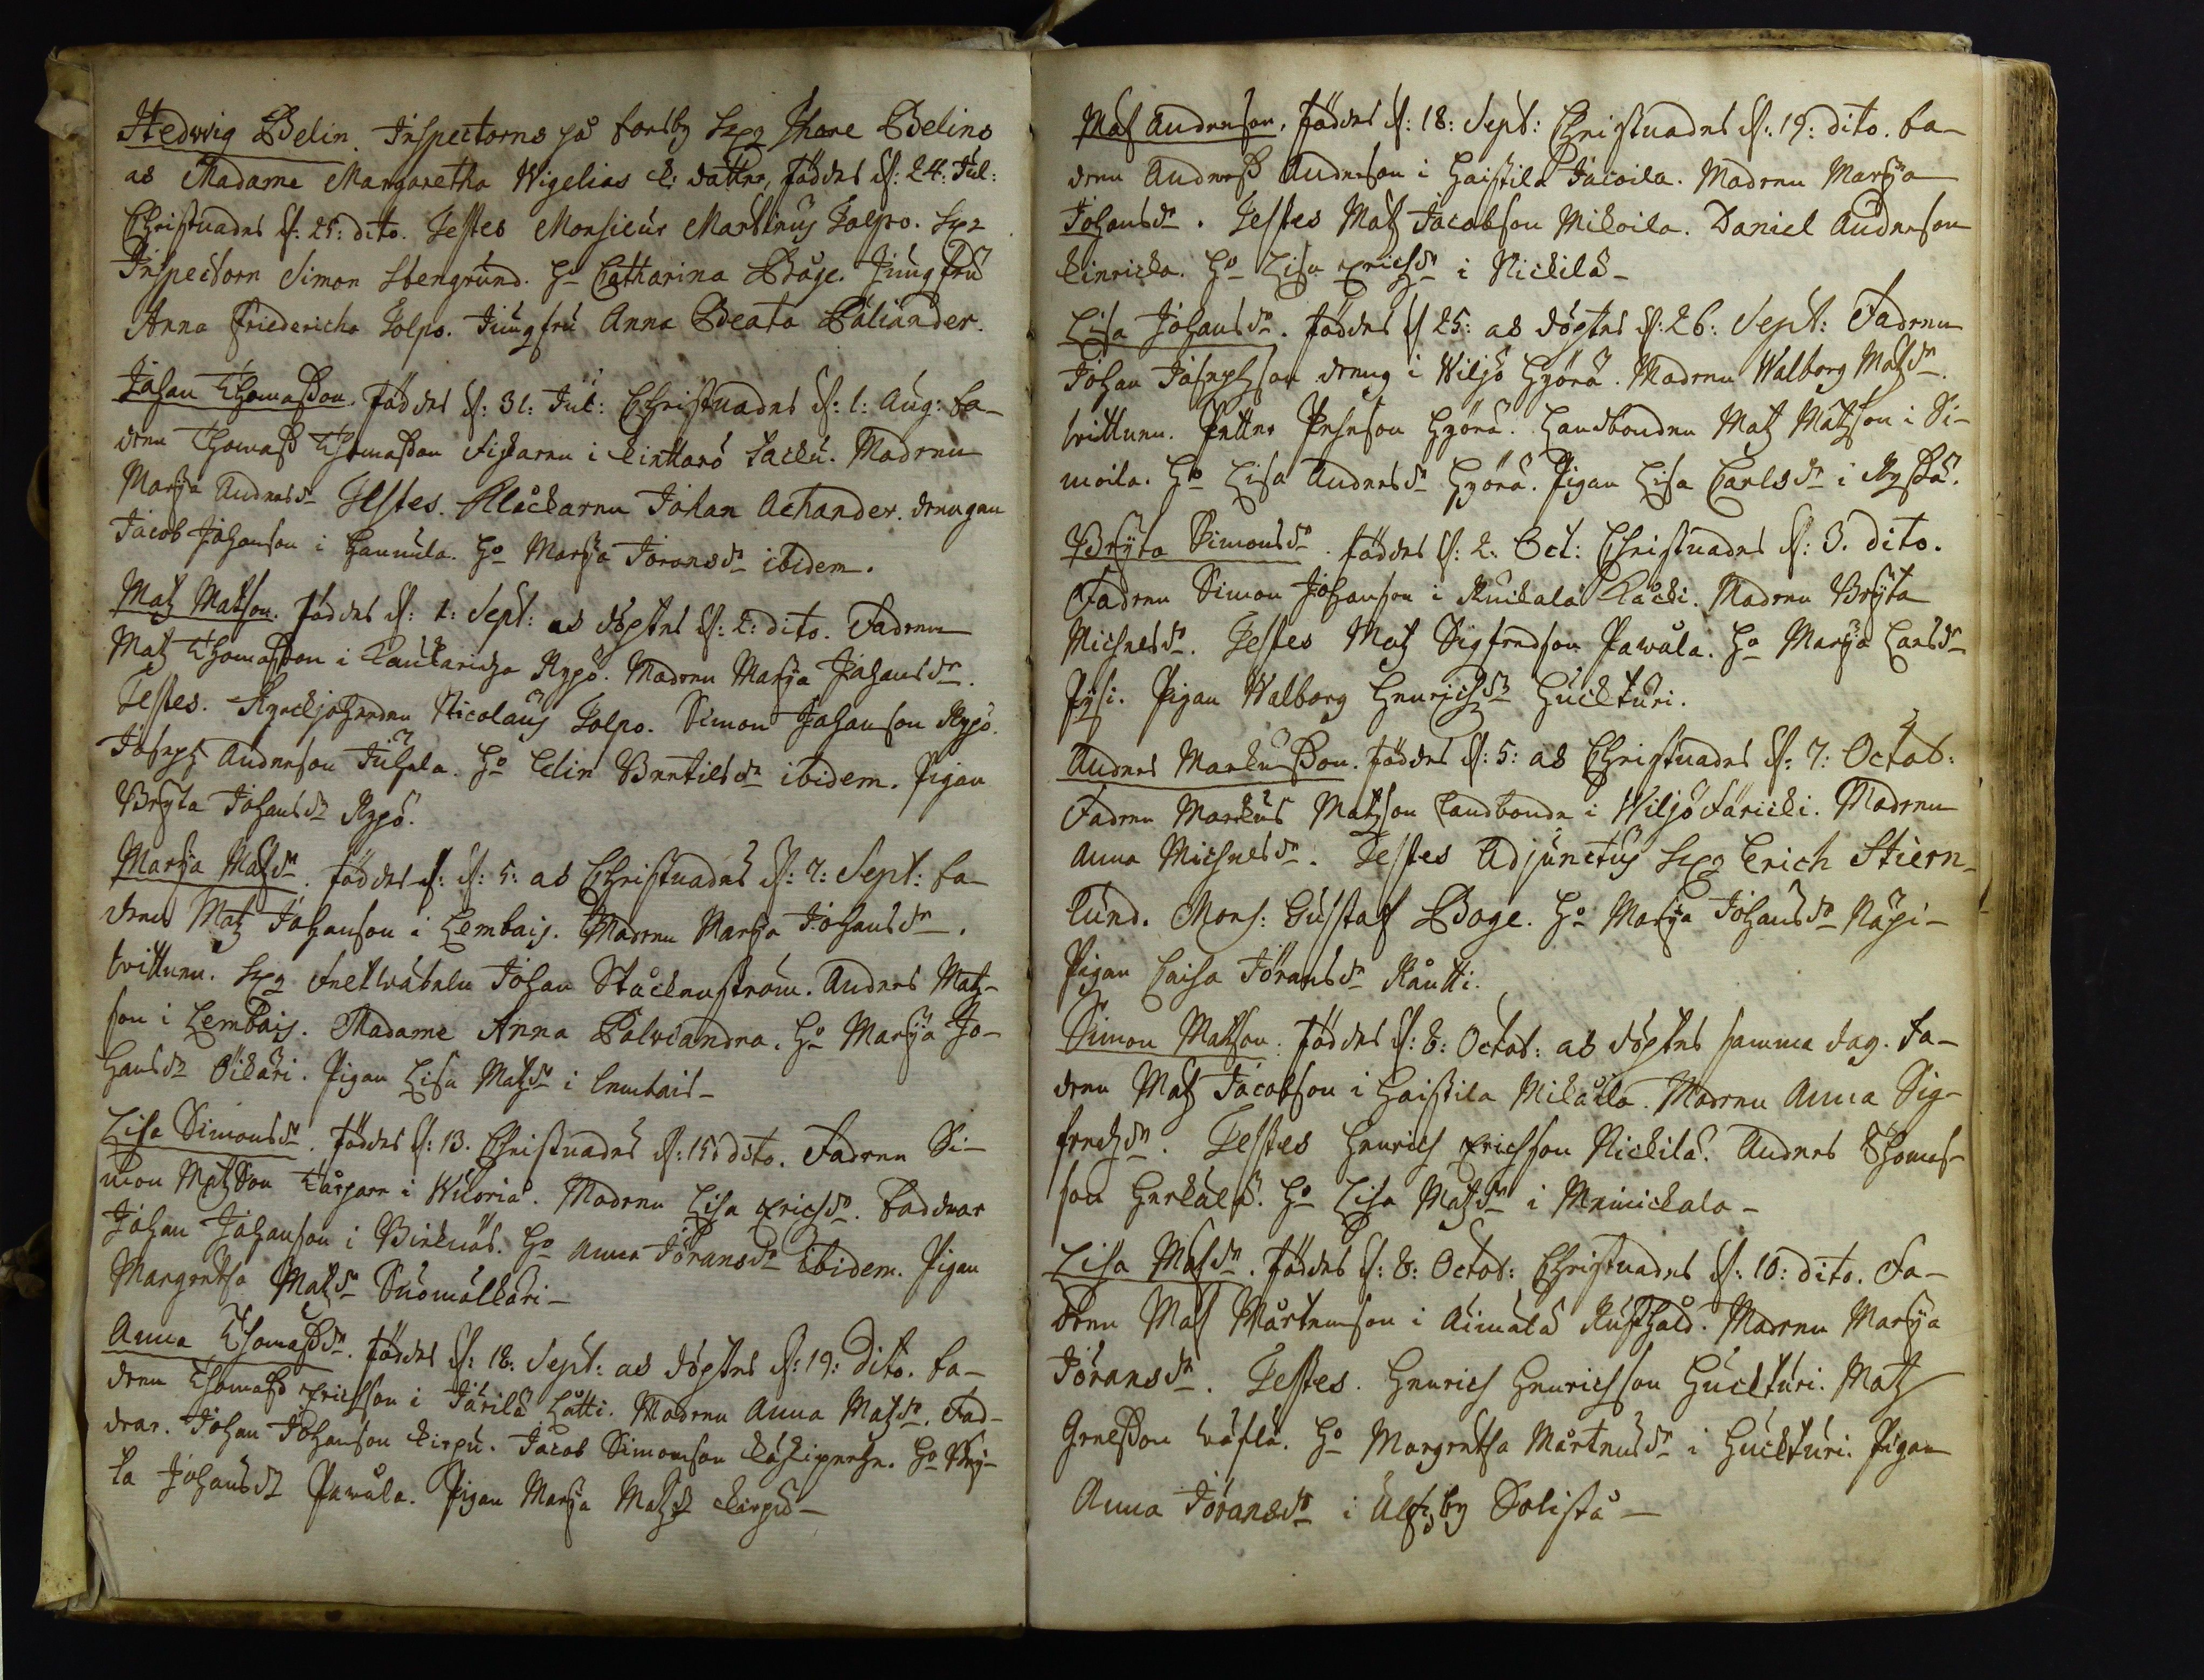 Hedwig Belin. Inspectorns på Forsby H:r Thore Belins
as Madame Margaretha Wigelias dotter, föddes d: 24: Jul:
Christnades d: 25: dito. Testes Monsieur Martinus Tolpo. H:r
Inspectorn Simon Stengrund. H:o Catharina Boge. Jungfru
Anna Friedericha Tolpo. Jungfru Anna Beata Paliander.
Johan Thomasson. föddes d: 31: Jul: Christnades d: 1: Aug: Fa-
dren Thomas Thomasson Fiskaren i Lacku. Modren
Marja Andersdr Testes. Klåckaren Johan Achander. drengen
Jacob Johanson i Hannula. Ho Marja Göransdr ibidem.
Matz Matson. föddes d: 1: Sept: as döptes d: 2: dito. Fadren
Matz Thomasson i Rypö. Modren Marja Johansdr.
Testes. Kyrckjoherden Nicolaus Tolpo. Simon Johanson Rypö.
Joseph Anderson Juhala. Ho Elin Bertilsdr ibidem. Pigan
Bryta Johansdr Rypö.
Marja Matzdr. föddes d: 5: as Christnades d: 7: Sept: Fa-
dren Matz Johanson i Lembois. Modren Marja Johansdr.
Vittnen. H:r Johan Stackenström. Anders Matz-
son i Lembois. Madame Anna Palviandra. Ho Marja Jo-
hansdr Oikari. Pigan Lisa Matzdr i Lembois-
Lisa Simonsdr. föddes d: 13. Christnades d: 15: dito. Fadren Si-
mon Matzson Torpare i Wuoria. Modren Lisa Erichsdr. Faddrar
Johan Johanson i Birknäs. Ho Anna Göransdr Ibidem. Pigan
Margretha Matzdr Suomalkari-
Anna Thomasdr. föddes d: 18: Sept: as döptes d: 19: dito. Fa-
dren Thomas Erichson i Järilä Lätti. Modren Anna Matzdr. Fad-
drar. Johan Johanson Kirpu. Jacob Simonson Käkipere. Ho Bry-
ta Johansdr Pawåla. Pigan Marja Matzdr Kirpu-
Mats Anderson. föddes d: 18: Sept: Christnades d: 19: dito. Fa-
dren Anders Anderson i Haistila Jacoila. Modren Marja
Johansdr. Testes Matz Jacobson Mikoila. Daniel Anderson
Kinricka. Ho Lisa Erichsdr i Nickilä-
Lisa Johansdr. föddes d 25: as döptes d: 26: Sept: Fadren
Johan Josephson dreng i Wiljö Hyörä. Modren Walborg Matzdr.
Vittnen. Petter Peherson Hyörä. Landbonden Matz Matzson i Si-
moila. Ho Lisa Andersdr Hyörä. Pigan Lisa Carlsdr i Ryssä.
Bryta Simonsdr. föddes d: 2. Oct: Christnades d: 3. dito.
Fadren Simon Johanson i Kuickala Kåcki. Modren Bryta
Michelsdr. Testes Matz Sigfredson Pawåla. Ho Marja Larsdr
Pysi. Pigan Walborg Henrichsdr Huckturi.
Anders Markusson. föddes d: 5: as Christnades d: 7: Octob:
Fadren Markus Matzson Landbonde i Wiljö Färicki. Modren
Anna Michelsdr. Testes Adjunctus H:r Erich Stiern-
lund. Mons: Gustaf Boge. Ho Marja Johansdr Näpi-
Pigan Caisa Göransdr Råutti.
Simon Matson. föddes d: 8: Octob: as döptes samma dag. Fa-
dren Matz Jacobson i Haistila Mikåila. Modren Anna Sig-
fredsdr. Testes Henrich Erichson Nickilä. Anders Thomas-
son Herkälä. Ho Lisa Matzdr i Meinickala-
Lisa Matsdr. föddes d: 8: Octob: Christnades d: 10: dito. Fa-
dren Mats Mårtenson i Aimälä Rusthåld. Modren Marja
Göransdr. Testes. Henrich Henrichson Huckturi. Matz
Grelsson Ho Margretha Mårtensdr i Huckturi. Pigan
Anna Göransdr i Ulfsby Solistå-